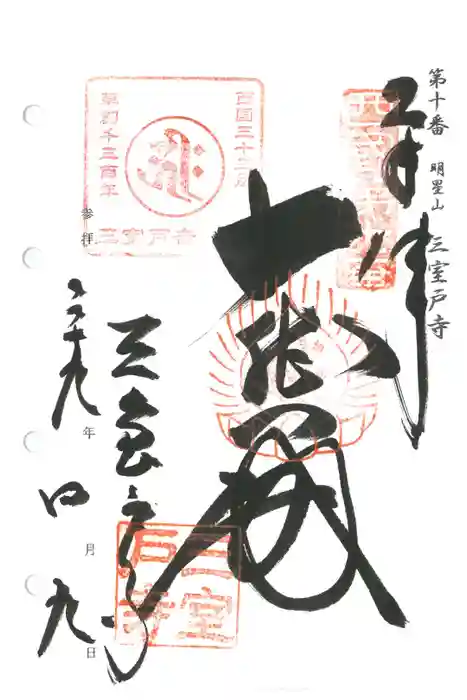 第十番 明星山 三室戸寺
奉拝
大悲殿
三室戸寺
二十九年
四月
九日
参拝
西国三十三所
草創千三百年
三室戸寺
三室戸寺